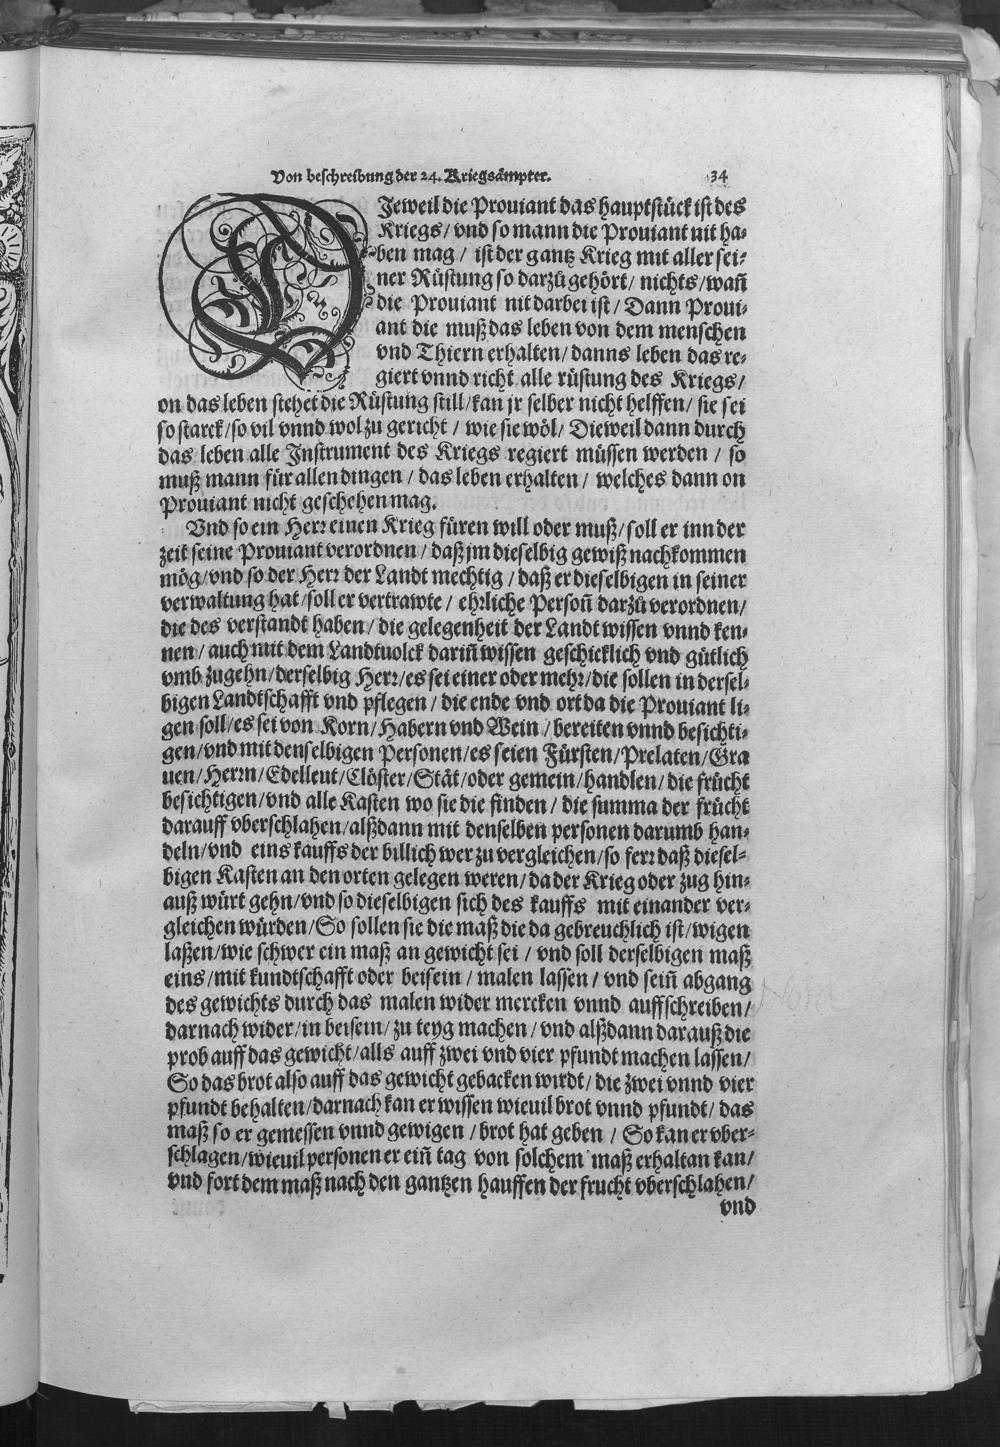 Von beschreibung der 24. Kriegsämpter. 34
DJeweil die Prouiant das hauptstück ist des
Kriegs/ vnd so mann die Prouiant nit ha-
ben mag/ ist der gantz Krieg mit aller sei-
ner Rüstung so darzů gehört/ nichts/ wañ
die Prouiant nit darbei ist/ Dann Proui-
ant die muß das leben von dem menschen
vnd Thiern erhalten/ danns leben das re-
giert vnnd richt alle rüstung des Kriegs/
on das leben stehet die Rüstung still/ kan jr selber nicht helffen/ sie sei
so starck/ so vil vnnd wol zu gericht/ wie sie wöl/ Dieweil dann durch
das leben alle Instrument des Kriegs regiert müssen werden/ so
muß mann für allen dingen/ das leben erhalten/ welches dann on
Prouiant nicht geschehen mag.
Vnd so ein Herr einen Krieg füren will oder muß/ soll er inn der
zeit seine Prouiant verordnen/ daß jm dieselbig gewiß nachkommen
mög/ vnd so der Herr der Landt mechtig/ daß er dieselbigen in seiner
verwaltung hat/ soll er vertrawte/ ehrliche Persoñ darzů verordnen/
die des verstandt haben/ die gelegenheit der Landt wissen vnnd ken-
nen/ auch mit dem Landtuolck dariñ wissen geschicklich vnd gütlich
vmb zugehn/ derselbig Herr/ es sei einer oder mehr/ die sollen in dersel-
bigen Landtschafft vnd pflegen/ die ende vnd ort da die Prouiant li-
gen soll/ es sei von Korn/ Habern vnd Wein/ bereiten vnnd besichti-
gen/ vnd mit denselbigen Personen/ es seien Fürsten/ Prelaten/ Gra
uen/ Herrn/ Edelleut/ Clöster/ Stät/ oder gemein/ handlen/ die frücht
besichtigen/ vnd alle Kasten wo sie die finden/ die summa der frücht
darauff vberschlahen/ alßdann mit denselben personen darumb han-
deln/ vnd eins kauffs der billich wer zu vergleichen/ so ferr daß diesel-
bigen Kasten an den orten gelegen weren/ da der Krieg oder zug hin-
auß würt gehn/ vnd so dieselbigen sich des kauffs mit einander ver-
gleichen würden/ So sollen sie die maß die da gebreuchlich ist/ wigen
laßen/ wie schwer ein maß an gewicht sei/ vnd soll derselbigen maß
eins/ mit kundtschafft oder beisein/ malen lassen/ vnd seiñ abgang
des gewichts durch das malen wider mercken vnnd auffschreiben/
darnach wider/ in beisein/ zu teyg machen/ vnd alßdann darauß die
prob auff das gewicht/ alls auff zwei vnd vier pfundt machen lassen/
So das brot also auff das gewicht gebacken wirdt/ die zwei vnnd vier
pfundt behalten/ darnach kan er wissen wieuil brot vnnd pfundt/ das
maß so er gemessen vnnd gewigen/ brot hat geben/ So kan er vber-
schlagen/ wieuil personen er eiñ tag von solchem maß erhaltan kan/
vnd fort dem maß nach den gantzen hauffen der frucht vberschlahen/
vnd
Nota